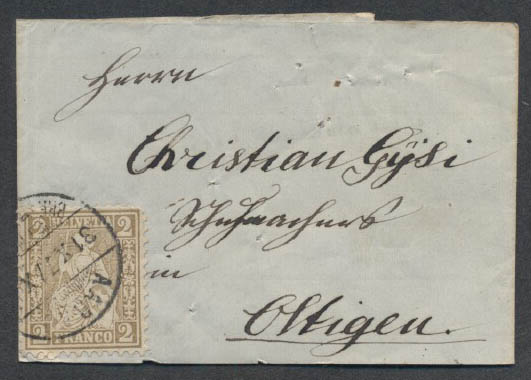 Herrn
Christian Gÿsi
Schuhmachers
in
Oltigen.
2 HELVETIA 2
2 FRANCO 2
AAR
31